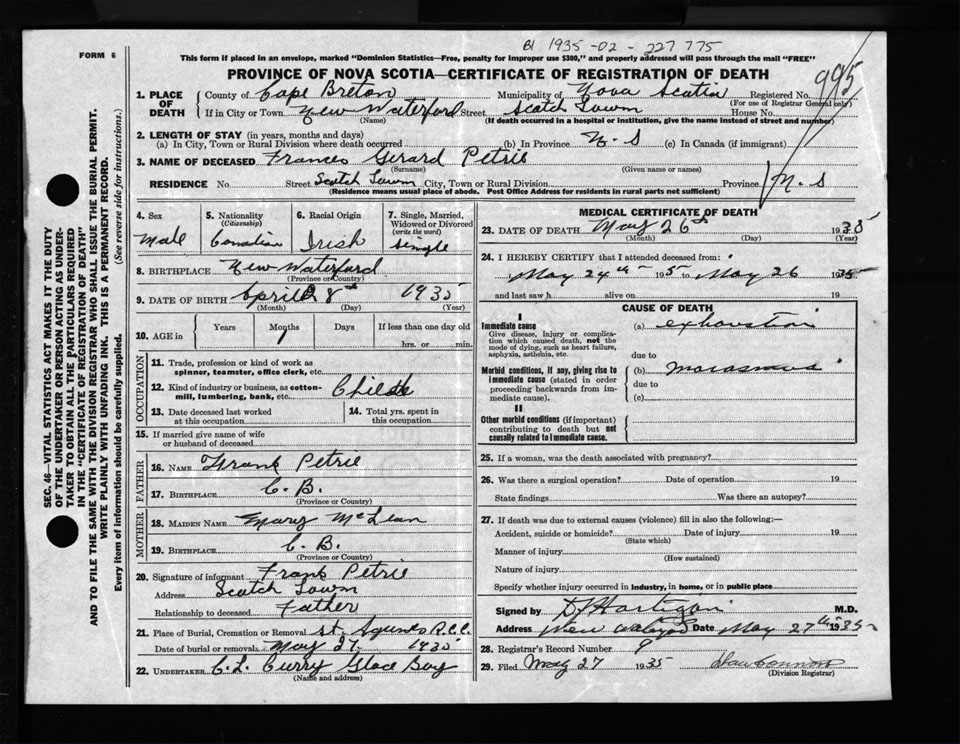 BI 1935-02-227 775
FORM 6
This form if placed in an envelope, marked "Dominion Statistics—Free, penalty for improper use $300," and properly addressed will pass through the mail "FREE"
PROVINCE OF NOVA SCOTIA—CERTIFICATE OF REGISTRATION OF DEATH
995
1. PLACE OF DEATH
County of Cape Breton Municipality of Nova Scotia Registered No.
(For use of Registrar General only)
If in City or Town New Waterford Street Scotch Town House No.
(Name) (If death occurred in a hospital or institution, give the name instead of street and number)
2. LENGTH OF STAY (in years, months and days)
(a) In City, Town or Rural Division where death occurred (b) In Province N. S (c) In Canada (if immigrant)
3. NAME OF DECEASED Frances Gerard Petrie
(Surname) (Given name or names)
RESIDENCE No. Street Scotch Town City, Town or Rural Division Province N. S
(Residence means usual place of abode. Post Office Address for residents in rural parts not sufficient)
4. Sex
Male
5. Nationality
(Citizenship)
Canadian
6. Racial Origin
Irish
7. Single, Married, Widowed or Divorced
(write the word)
Single
8. BIRTHPLACE New Waterford
(Province or Country)
9. DATE OF BIRTH April 8th 1935
(Month) (Day) (Year)
10. AGE in
Years Months Days If less than one day old
1
hrs. or min.
OCCUPATION
11. Trade, profession or kind of work as spinner, teamster, office clerk, etc.
12. Kind of industry or business, as cotton-mill, lumbering, bank, etc. Child
13. Date deceased last worked at this occupation
14. Total yrs. spent in this occupation
15. If married give name of wife or husband of deceased
FATHER
16. NAME Frank Petrie
17. BIRTHPLACE C. B.
(Province or Country)
MOTHER
18. MAIDEN NAME Mary McLean
19. BIRTHPLACE C. B.
(Province or Country)
20. Signature of informant Frank Petrie
Address Scotch Town
Relationship to deceased Father
21. Place of Burial, Cremation or Removal St. Agnes R.C.C.
Date of burial or removal May 27 1935
22. UNDERTAKER C. L. Curry Glace Bay
(Name and address)
MEDICAL CERTIFICATE OF DEATH
23. DATE OF DEATH May 26th 1935
(Month) (Day) (Year)
24. I HEREBY CERTIFY that I attended deceased from:
May 24th 1935 to May 26 1935
and last saw h alive on 19
CAUSE OF DEATH
I
Immediate cause
Give disease, injury or complication which caused death, not the mode of dying, such as heart failure, asphyxia, asthenia, etc.
(a) exhaustion
due to
Morbid conditions, if any, giving rise to immediate cause (stated in order proceeding backwards from immediate cause).
(b) marasmus
due to
(c)
II
Other morbid conditions (if important) contributing to death but not causally related to immediate cause.
25. If a woman, was the death associated with pregnancy?
26. Was there a surgical operation? Date of operation 19
State findings Was there an autopsy?
27. If death was due to external causes (violence) fill in also the following:—
Accident, suicide or homicide? Date of injury 19
(State which)
Manner of injury
(How sustained)
Nature of injury
Specify whether injury occurred in industry, in home, or in public place
Signed by D Hartigan M.D.
Address New Waterford Date May 27th 1935
28. Registrar's Record Number 9
29. Filed May 27 1935
(Division Registrar)
SEC. 46—VITAL STATISTICS ACT MAKES IT THE DUTY
OF THE UNDERTAKER OR PERSON ACTING AS UNDERTAKER TO OBTAIN ALL THE PARTICULARS REQUIRED
IN THE "CERTIFICATE OF REGISTRATION OF DEATH"
AND TO FILE THE SAME WITH THE DIVISION REGISTRAR WHO SHALL ISSUE THE BURIAL PERMIT.
WRITE PLAINLY WITH UNFADING INK. THIS IS A PERMANENT RECORD.
Every item of information should be carefully supplied. (See reverse side for instructions.)